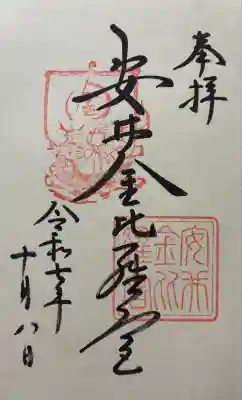 奉拝
安井金比羅宮
令和七年
十月八日
安井
金比
羅宮